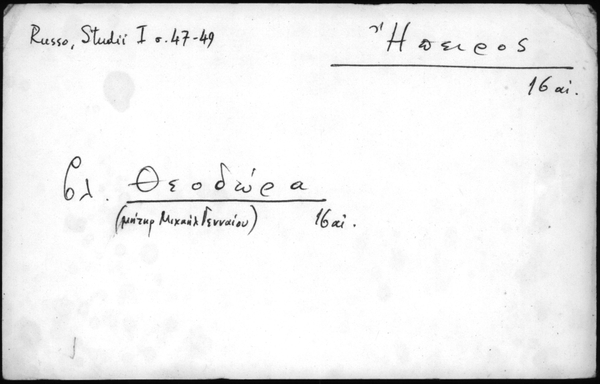 Russo, Studii I σ. 47-49
Ἤπειρος
16 αἰ.
βλ. Θεοδώρα
(μήτηρ Μιχαὴλ Γενναίου) 16 αἰ.